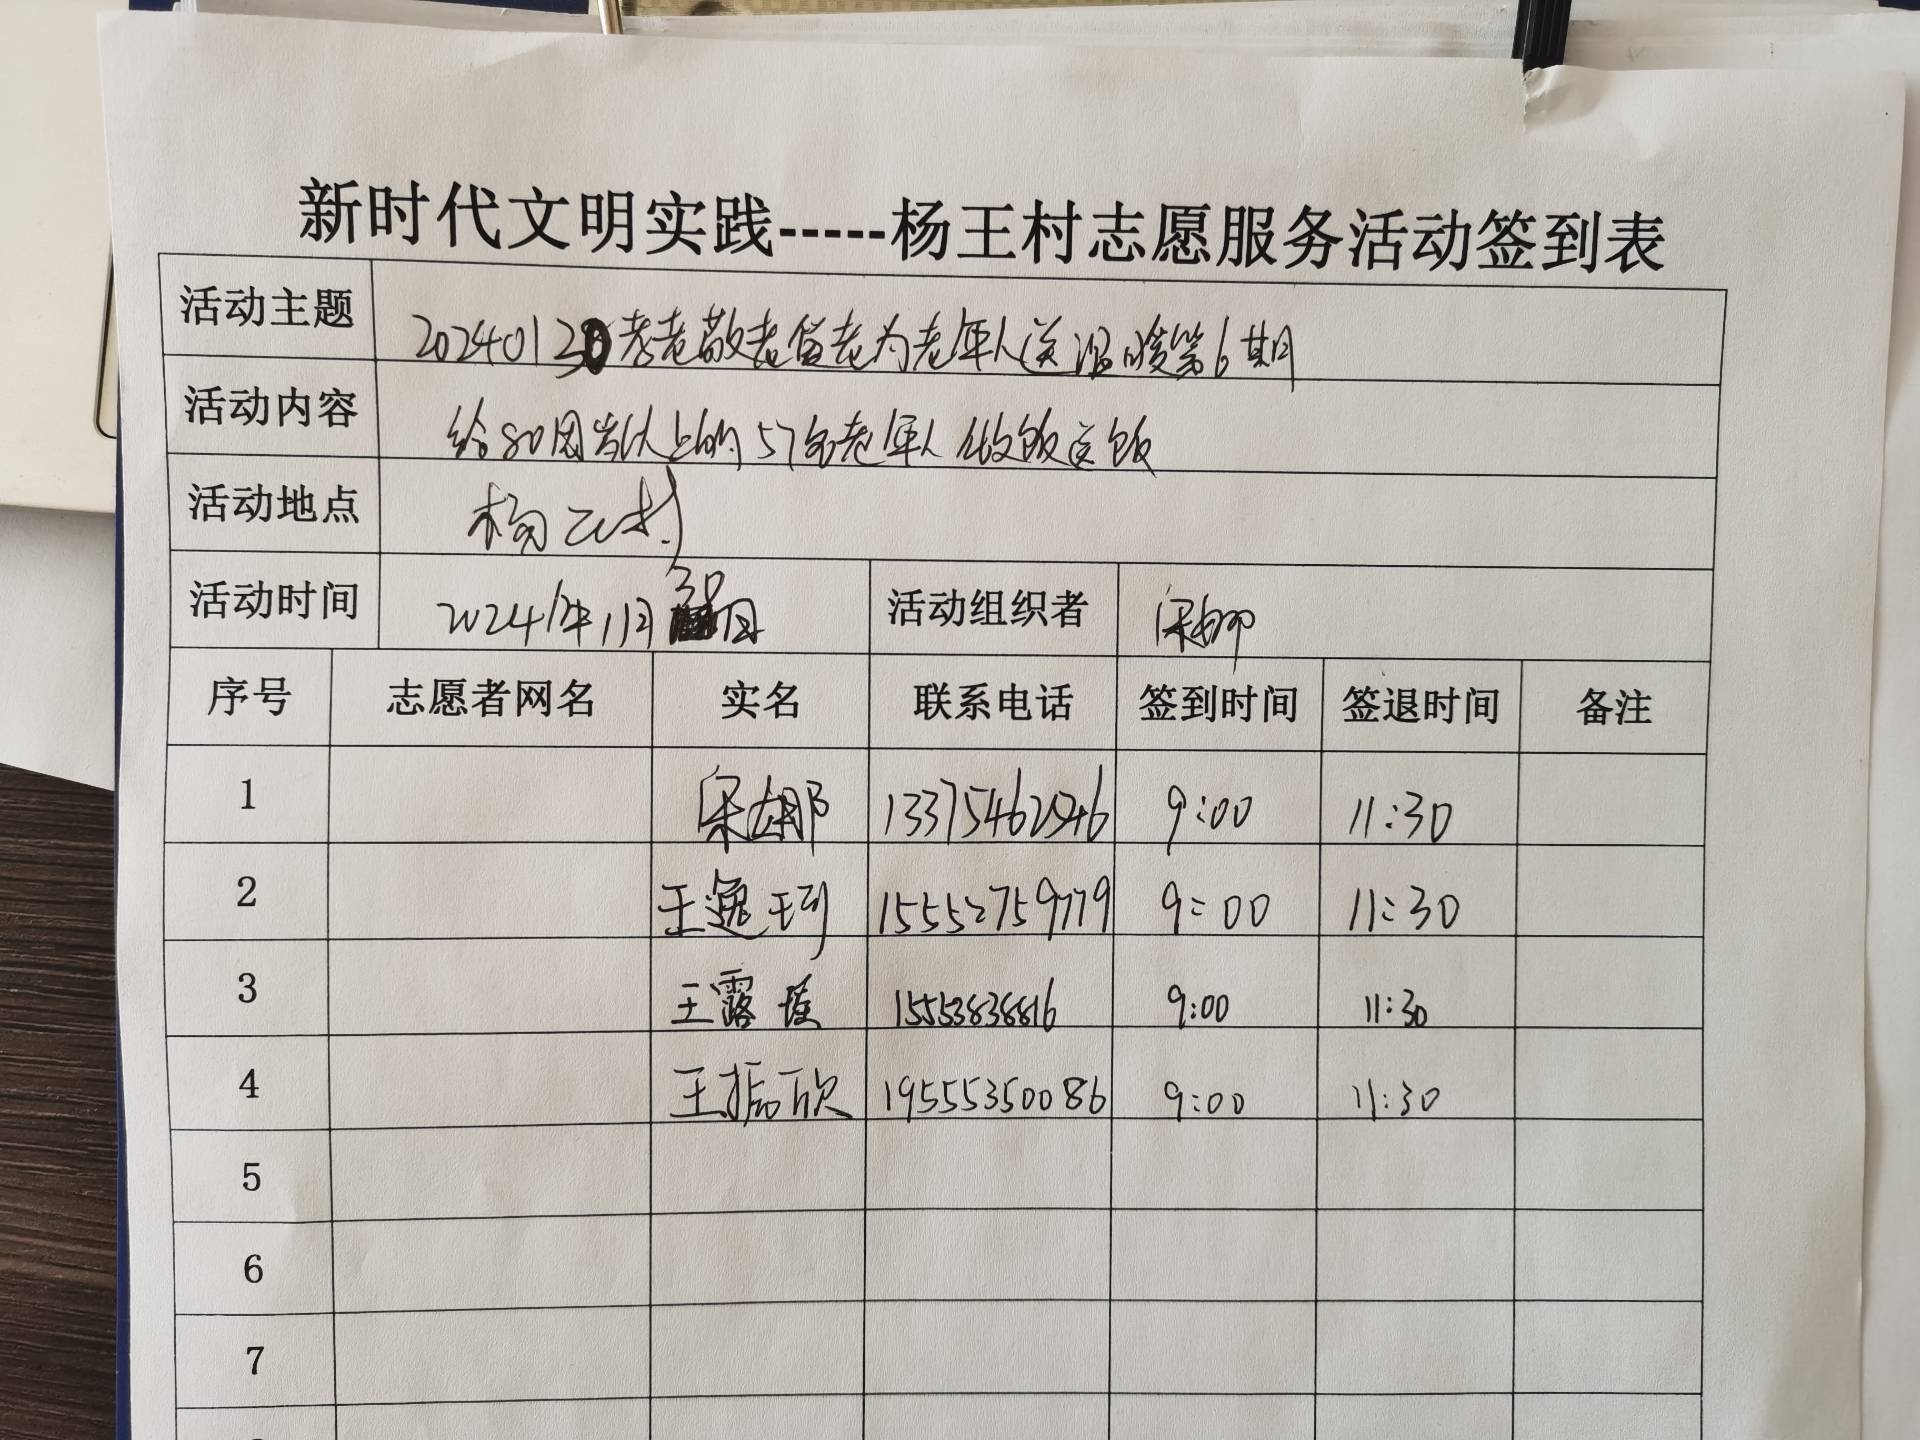 新时代文明实践-----杨王村志愿服务活动签到表
活动主题 20240130孝老敬老爱老为老年人送温暖第6期
活动内容 给80周岁以上的57名老年人做饭送饭
活动地点 杨王村
活动时间 2024年1月30日 活动组织者 宋娜
序号 志愿者网名 实名 联系电话 签到时间 签退时间 备注
1 宋娜 9:00 11:30
2 王逸珂 15552759779 9:00 11:30
3 王露 15553838816 9:00 11:30
4 王振欣 19555350086 9:00 11:30
5
6
7